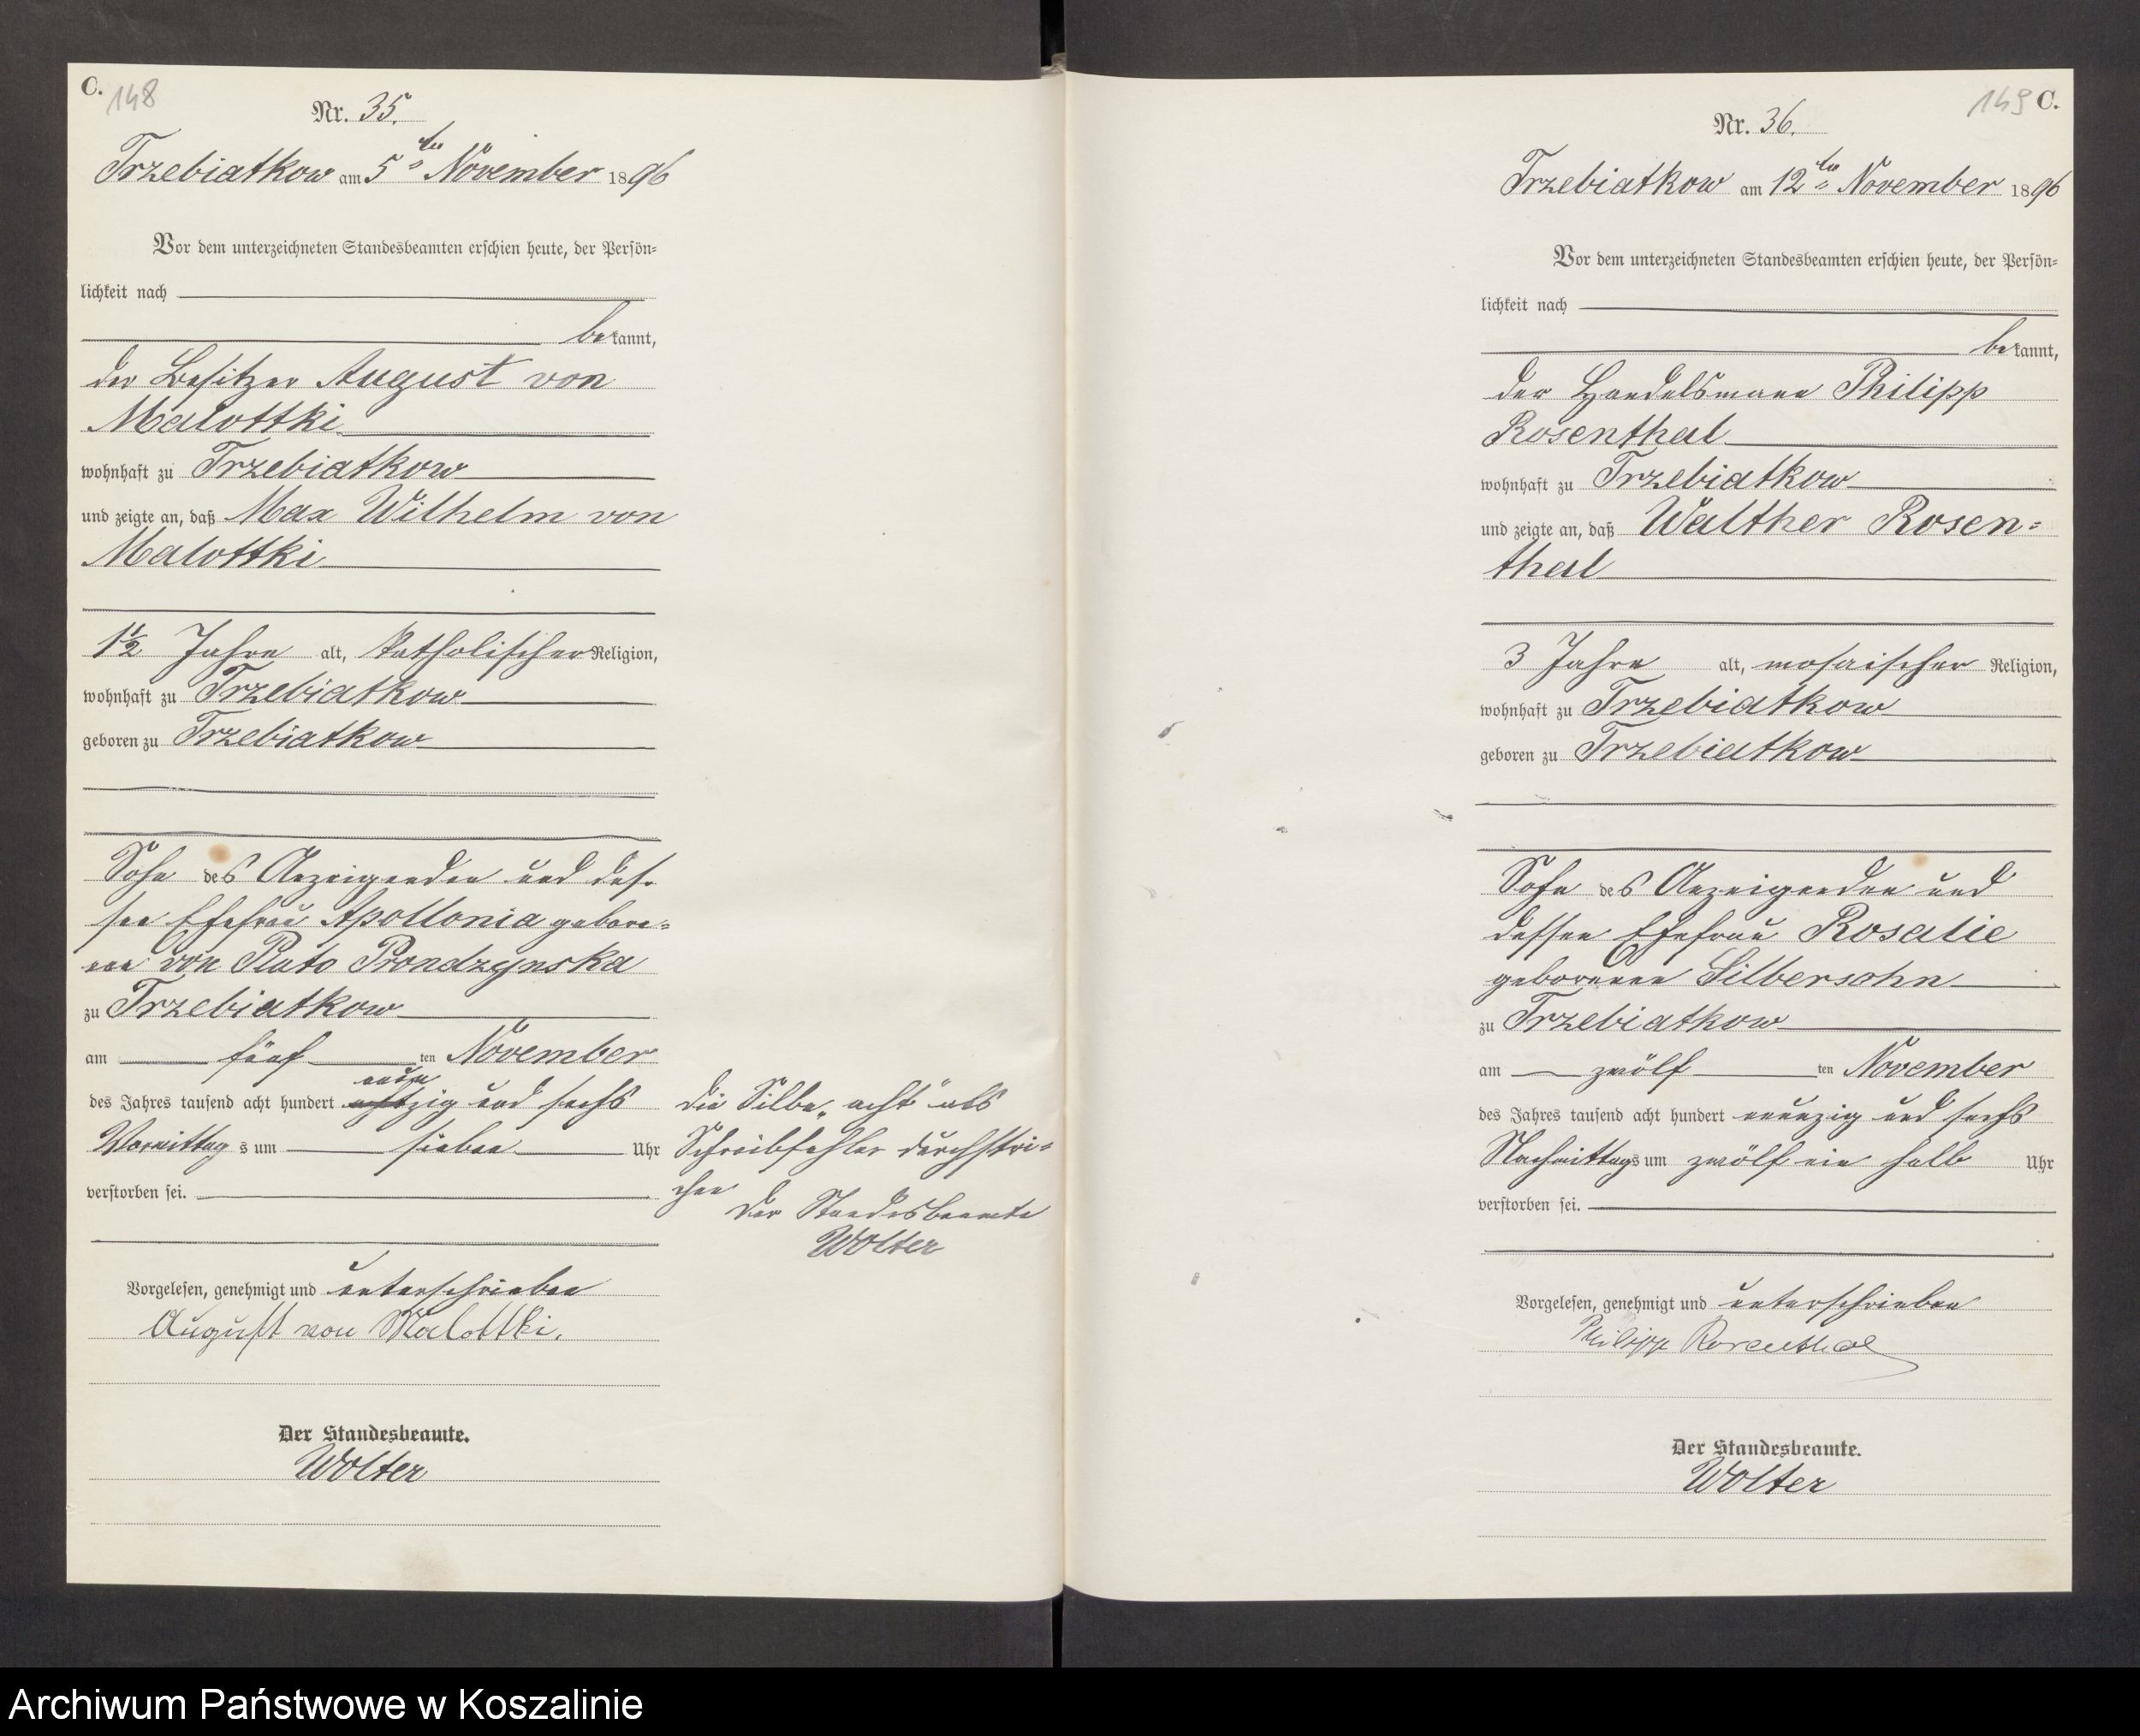 C.
148
Nr. 35.
Trzebiatkow am 5ten November 1896
Vor dem unterzeichneten Standesbeamten erschien heute, der Persön-
lichkeit nach
bekannt,
der Besitzer August von
Malottki
wohnhaft zu Trzebiatkow
und zeigte an, daß Max Wilhelm von
Malottki
1½ Jahre alt, katholischer Religion,
wohnhaft zu Trzebiatkow
geboren zu Trzebiatkow
Sohn des Anzeigenden und des-
sen Ehefrau Apollonia gebore-
nen von Pluto Prondzynska
zu Trzebiatkow
am fünf ten November
neun
des Jahres tausend acht hundert achtzig und sechs
Vormittags um sieben Uhr
verstorben sei.
Die Silbe „acht“ als
Schreibfehler durchstri-
chen
Der Standesbeamte
Wolter
Vorgelesen, genehmigt und unterschrieben
August von Malottki.
Der Standesbeamte.
Wolter
149 C.
Nr. 36.
Trzebiatkow am 12ten November 1896
Vor dem unterzeichneten Standesbeamten erschien heute, der Persön-
lichkeit nach
bekannt,
der Handelsmann Philipp
Rosenthal
wohnhaft zu Trzebiatkow
und zeigte an, daß Walther Rosen-
thal
3 Jahre alt, mosaischer Religion,
wohnhaft zu Trzebiatkow
geboren zu Trzebiatkow
Sohn des Anzeigenden und
dessen Ehefrau Rosalie
geborenen Silbersohn
zu Trzebiatkow
am zwölf ten November
des Jahres tausend acht hundert neunzig und sechs
Nachmittags um zwölf ein halb Uhr
verstorben sei.
Vorgelesen, genehmigt und unterschrieben
Philipp Rosenthal
Der Standesbeamte.
Wolter
Archiwum Państwowe w Koszalinie